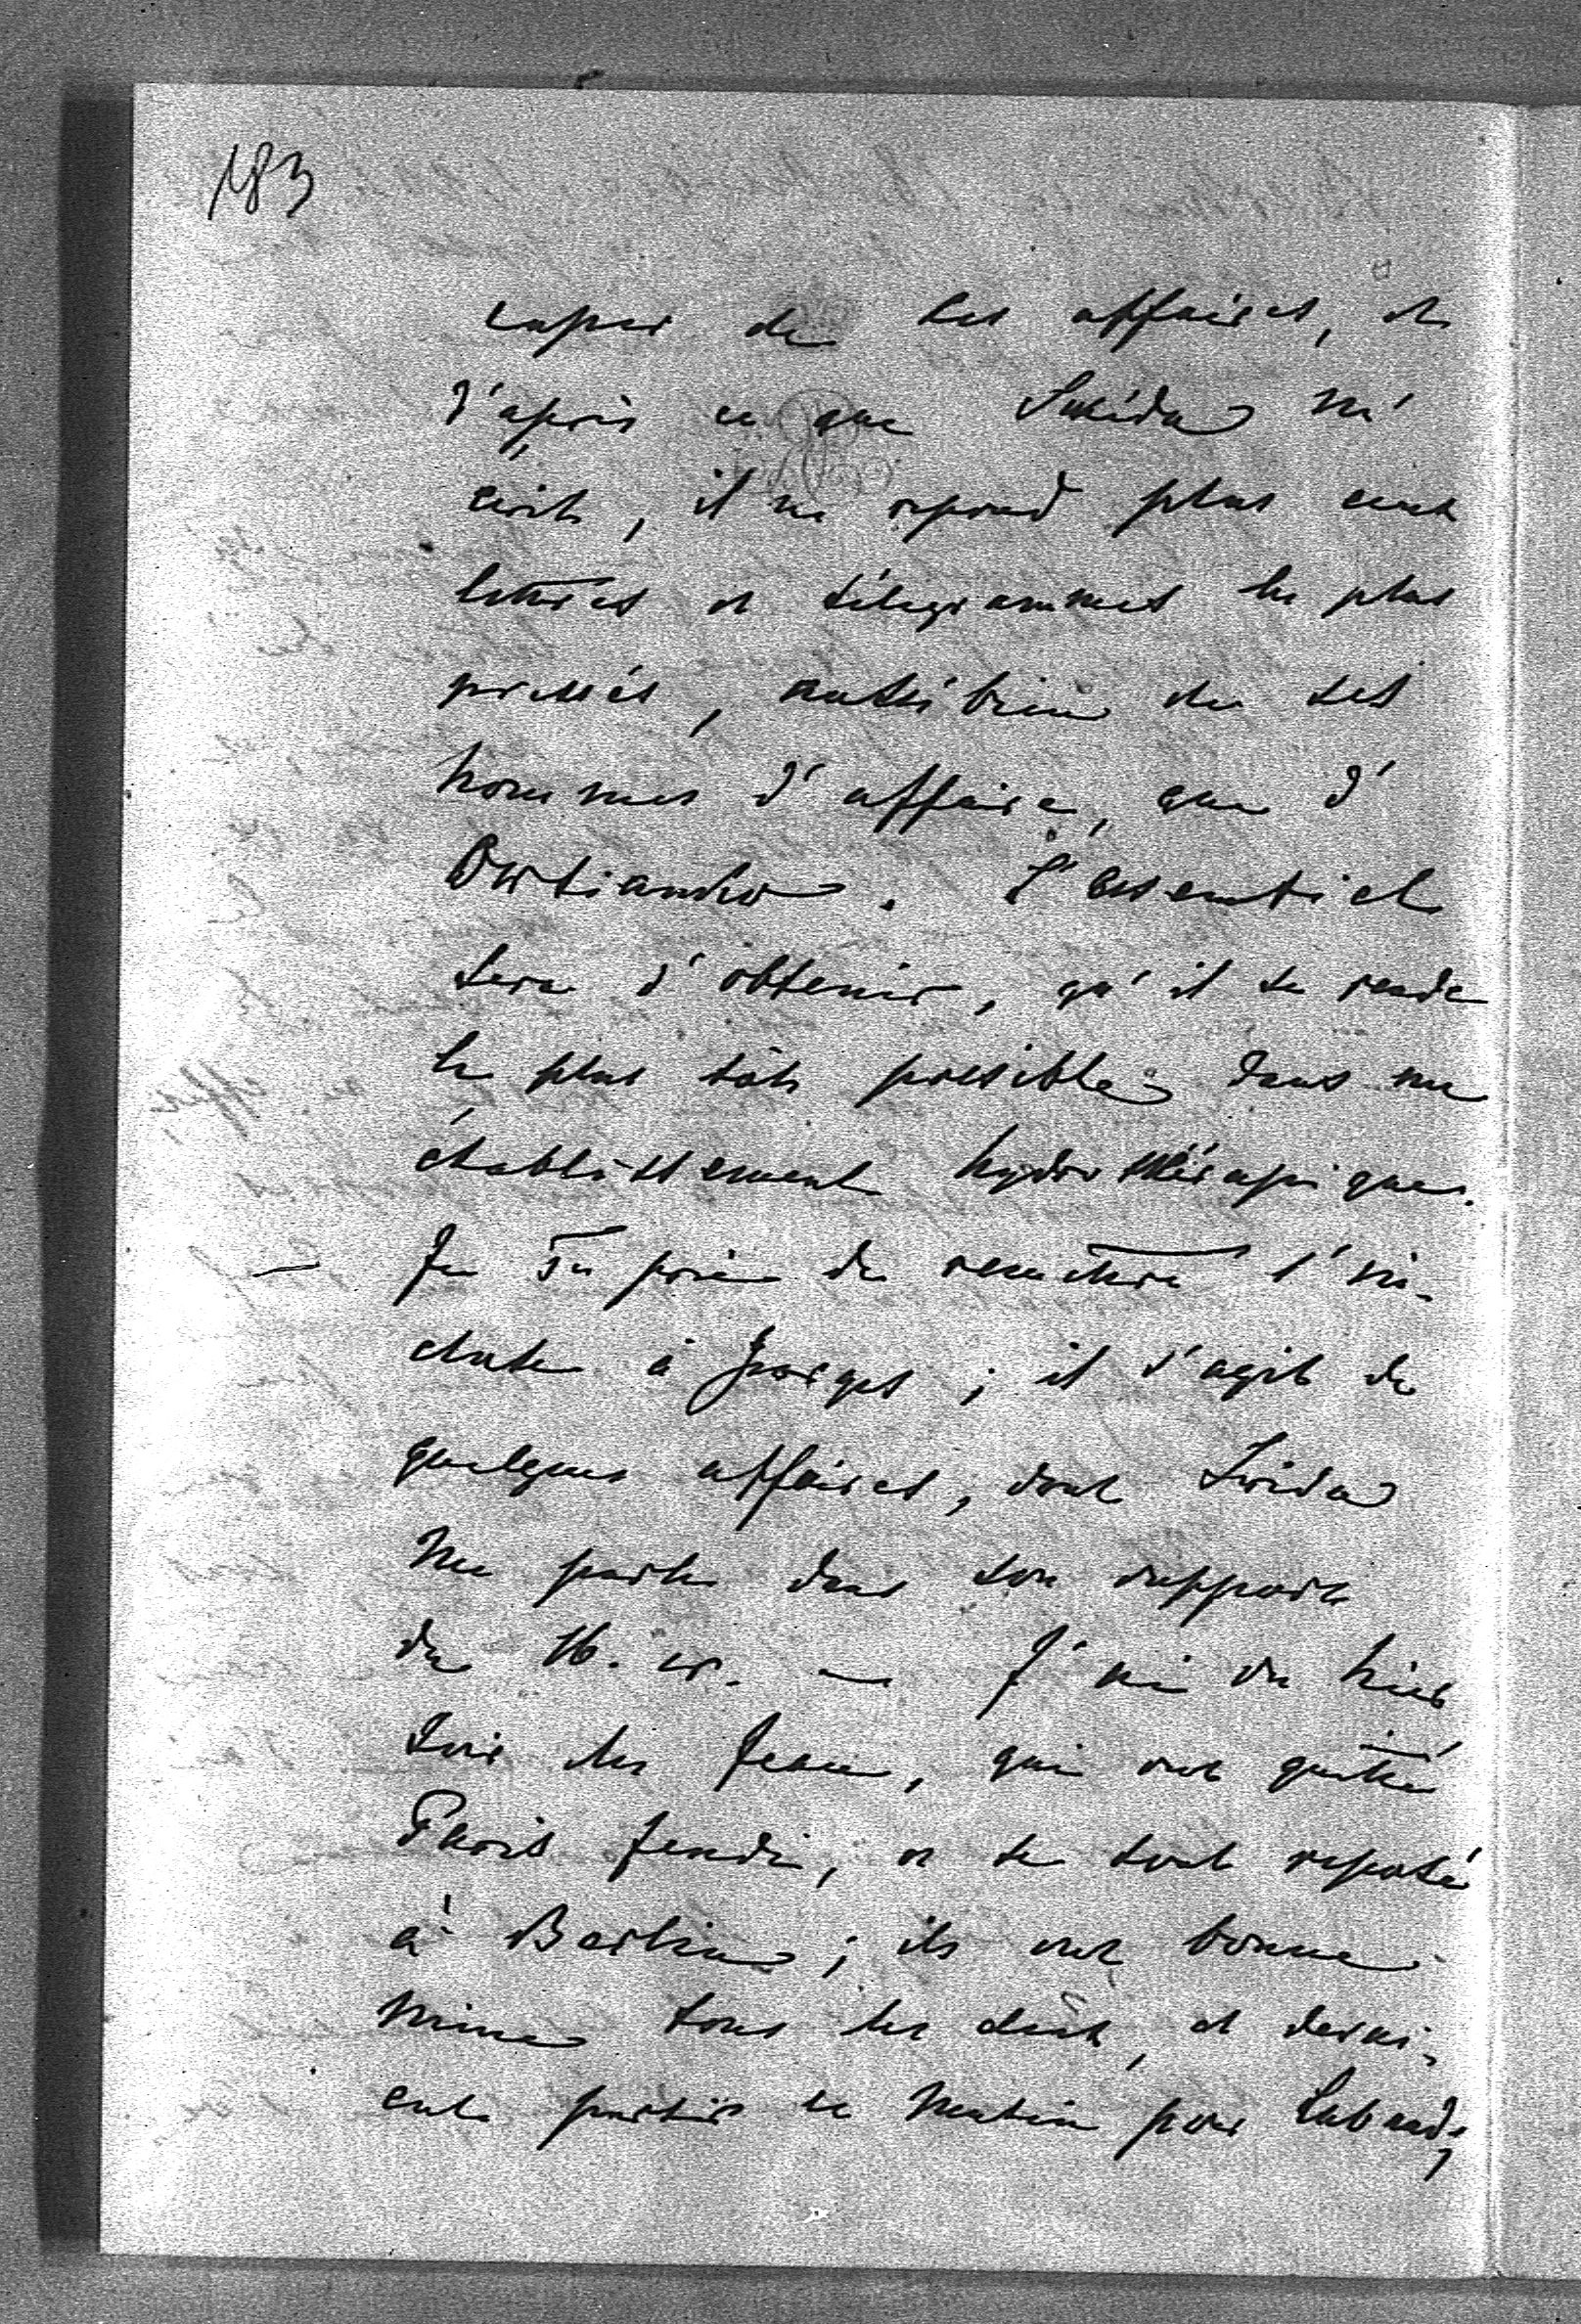 183
cuper de ses affaires, et
d'après ce que m'
écrit, il ne repond plus aux
lettres et télégrammes les plus
pressés, aussi bien de ses
hommes d'affaire, que d'
L'essentiel
sera d'obtenir, qu'il se rende
le plus tôt possible dans un
établissement hydrothérapique.
— Je Te prie de remettre l'in-
cluse à Georges; il s'agit de
quelques affaires, dont
me parle dans son rapport
du 16. cr. — J'ai vu hier
soir les Jean, qui ont quitté
Paris Jeudi, et se sont reposé
à Berlin; ils ont bonne
mine tous les deux, et devai-
ent partir ce matin pour